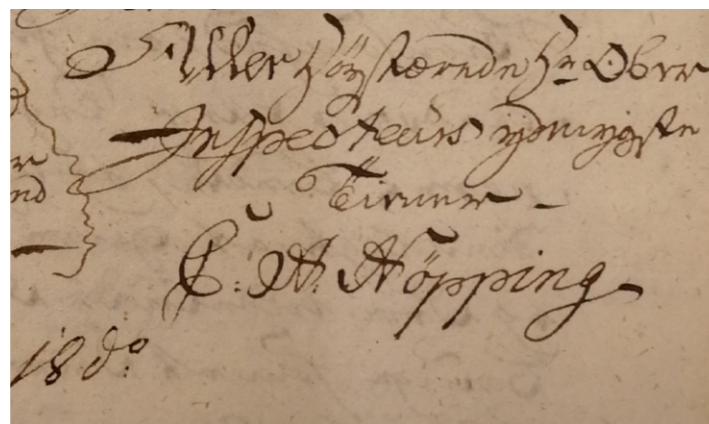 Aller Höystærede Hr. Ober
Inspecteurs ydmygste
Tiener
C: A. Höpping
18 do: